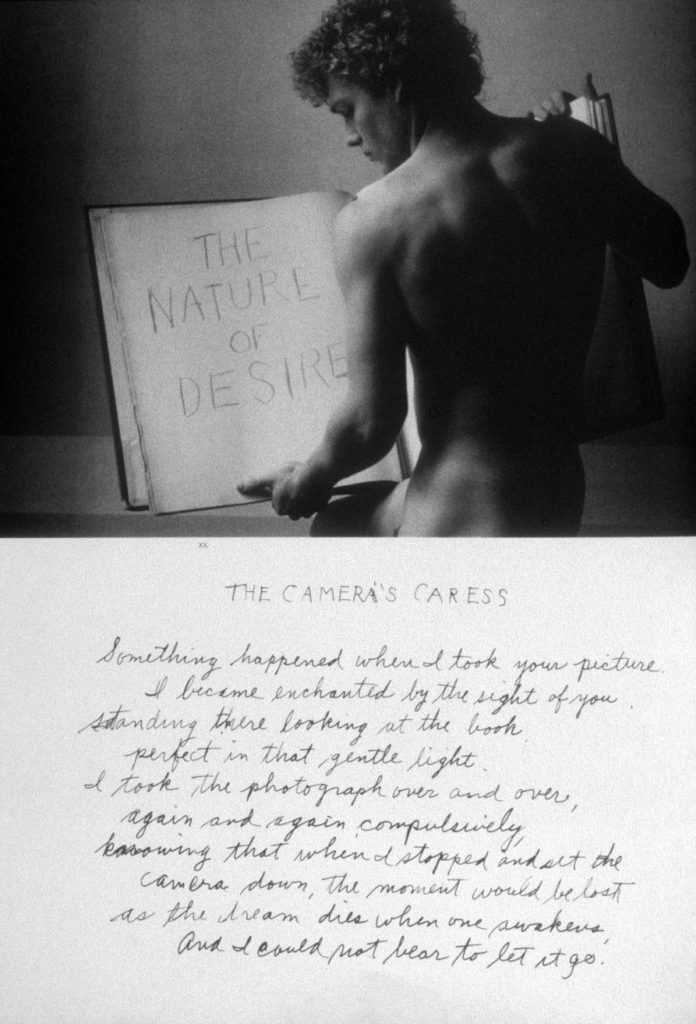 THE
NATURE
OF
DESIRE
XX
THE CAMERA'S CARESS
Something happened when I took your picture.
I became enchanted by the sight of you.
standing there looking at the book
perfect in that gentle light.
I took the photograph over and over,
again and again compulsively,
knowing that when I stopped and set the
camera down, the moment would be lost
as the dream dies when one awakens,
And I could not bear to let it go.